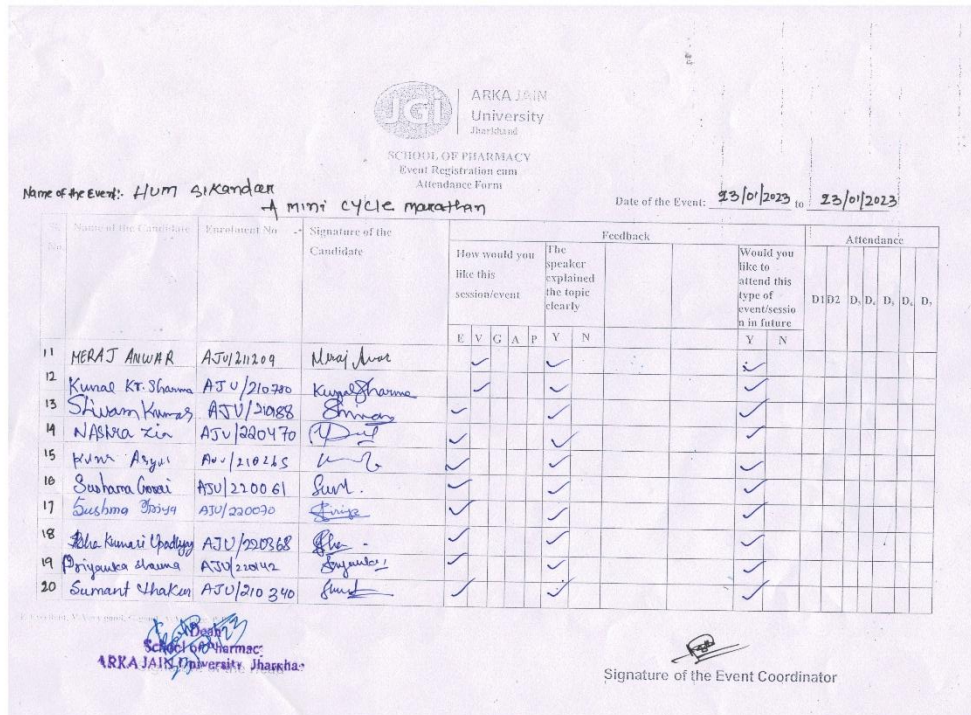 JGI
ARKA JAIN
University
Jharkhand
SCHOOL OF PHARMACY
Event Registration cum
Attendance Form
Name of the Event:- Hum Sikandar
A mini cycle marathan
Date of the Event: 23/01/2023 to 23/01/2023
Sl. No. Name of the Candidate Enrolment No Signature of the Candidate Feedback Attendance
How would you like this session/event The speaker explained the topic clearly Would you like to attend this type of event/session in future D1 D2 D3 D4 D5 D6 D7
E V G A P Y N Y N
11 MERAJ ANWAR AJU/211209 Meraj Anwar ✓ ✓ ✓
12 Kunal Kr. Sharma AJU/210780 Kunal Sharma ✓ ✓ ✓
13 Shivam Kumar AJU/210188 ✓ ✓ ✓
14 NASHRA Zia AJU/220470 ✓ ✓ ✓
15 AJU/210265 ✓ ✓ ✓
16 Sushama Gorai AJU/220061 ✓ ✓ ✓
17 Sushma AJU/220070 ✓ ✓ ✓
18 Kumari Upadhyay AJU/220368 ✓ ✓ ✓
19 Priyanka sharma AJU/220142 ✓ ✓ ✓
20 Sumant Thakur AJU/210340 ✓ ✓ ✓
Dean
School of Pharmac
ARKA JAIN University, Jharkha
Signature of the Event Coordinator